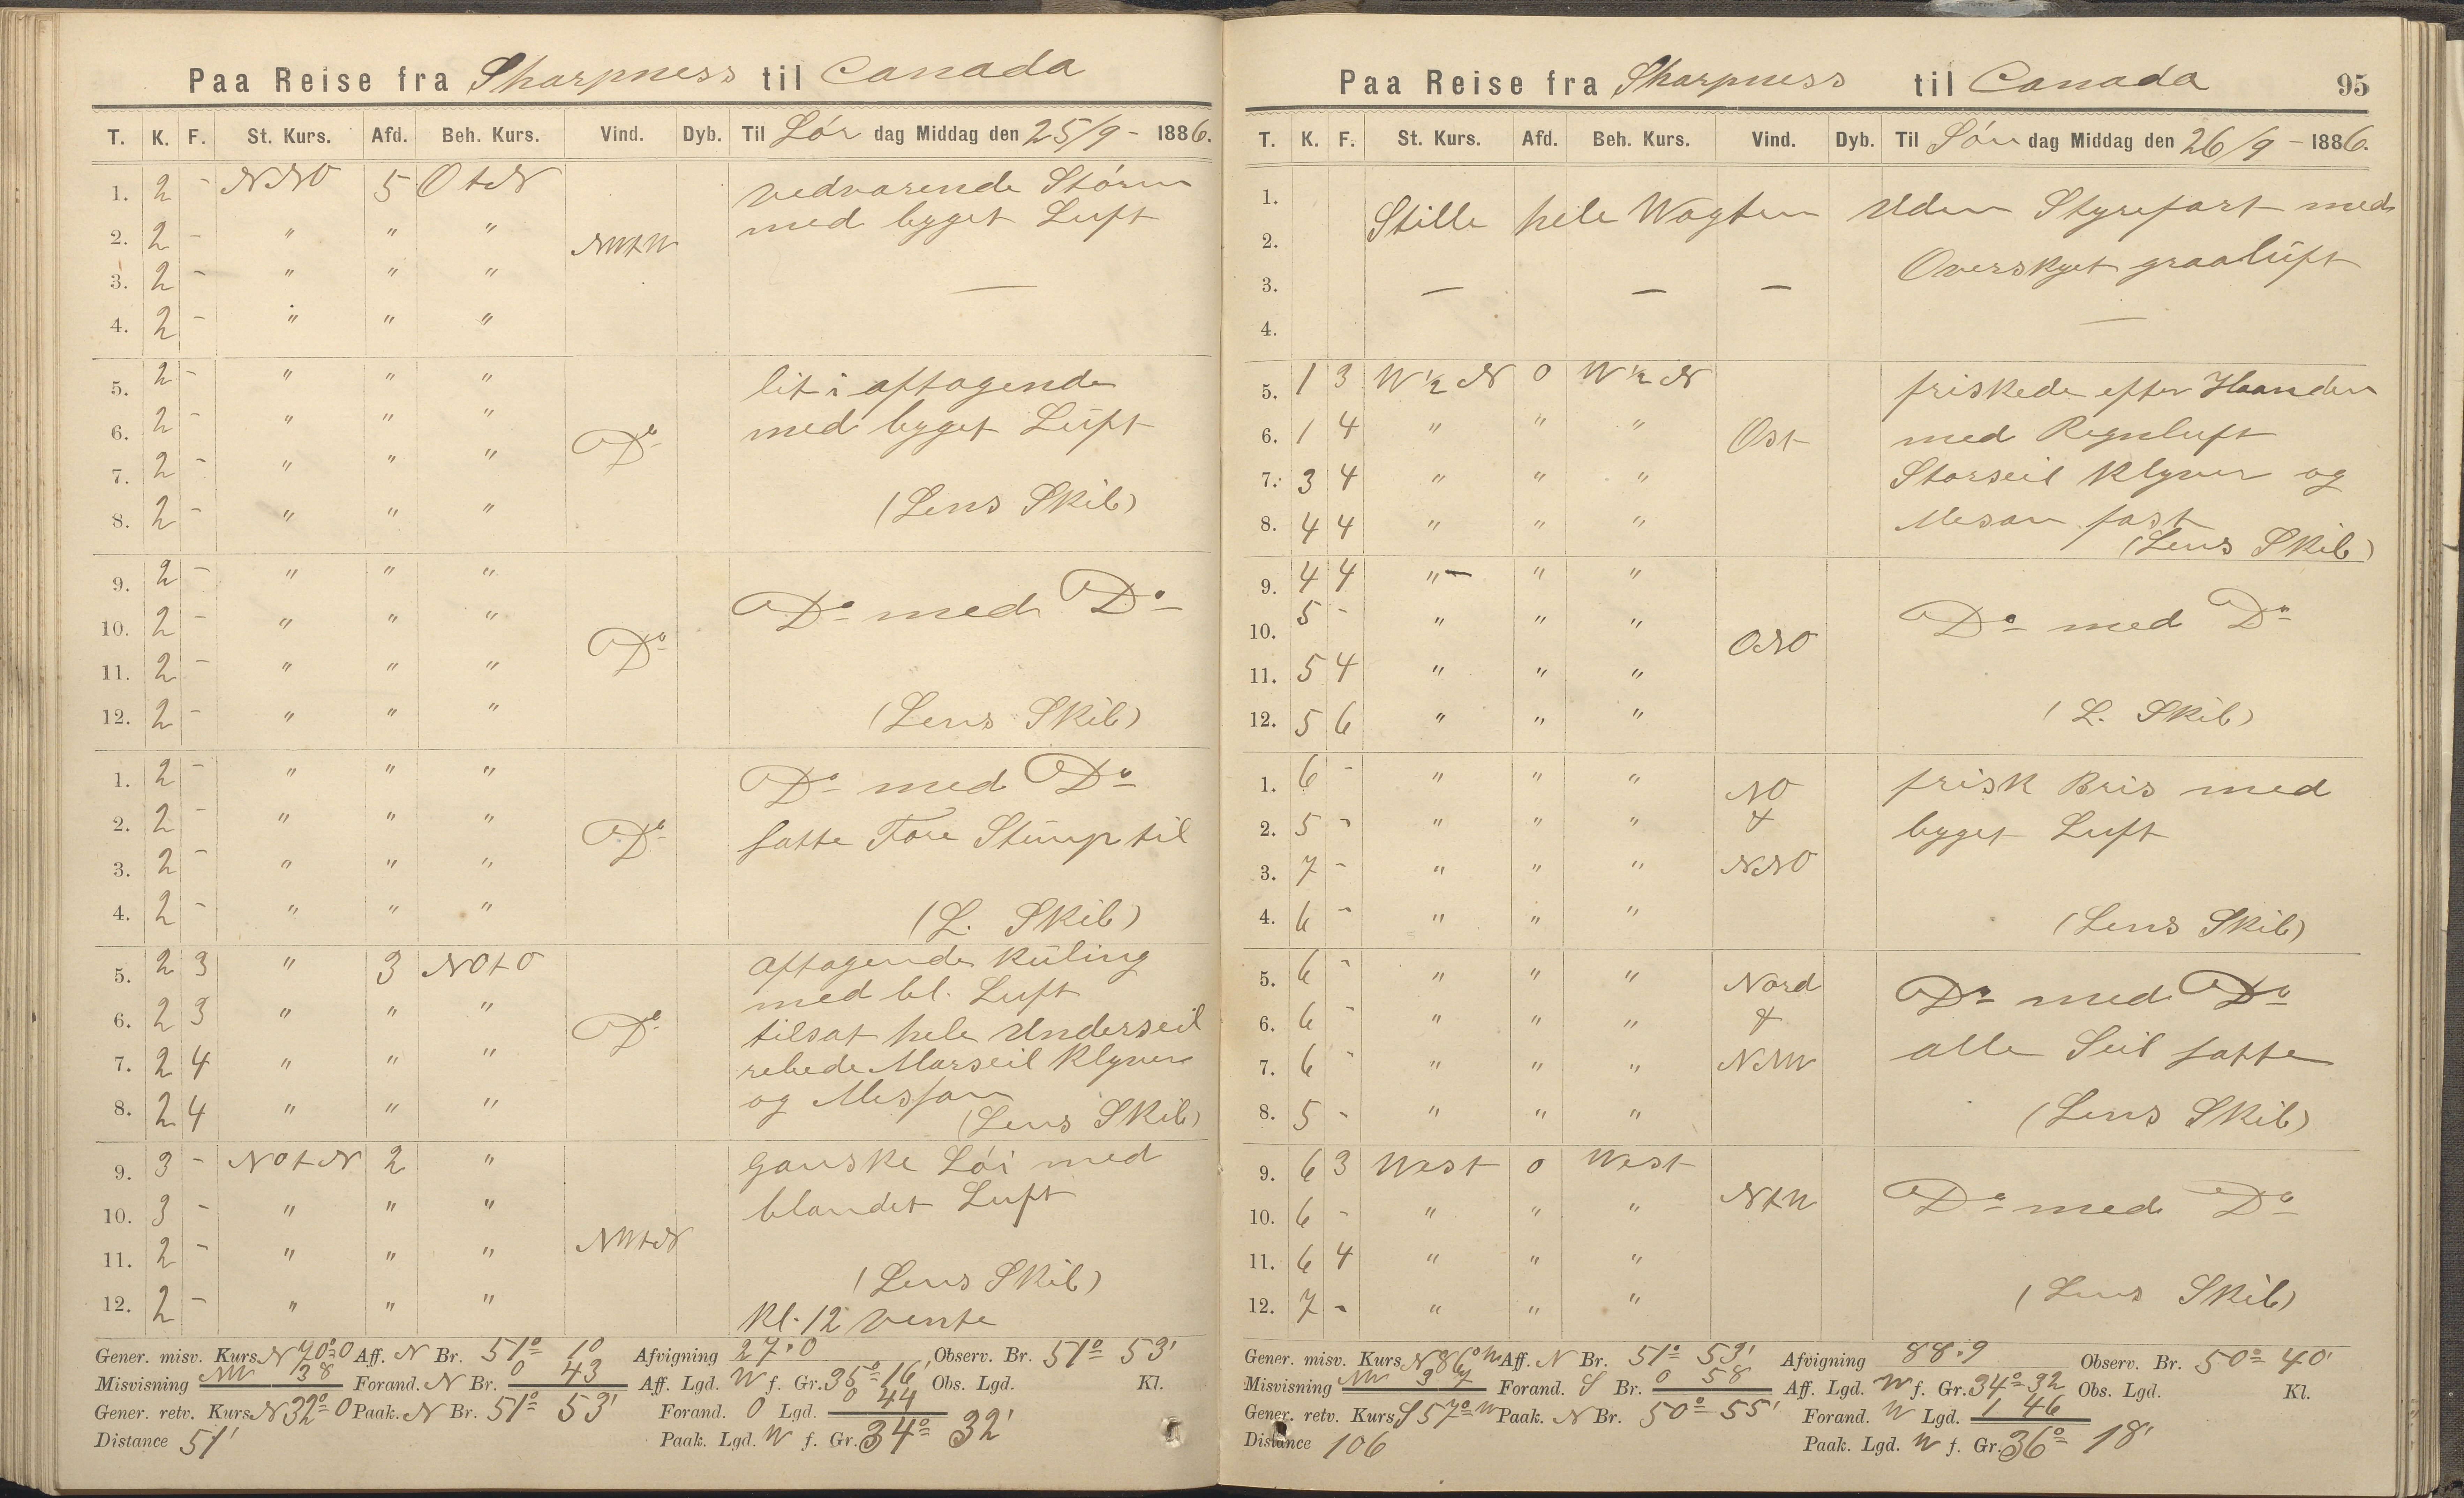 Paa Reise fra Sharpness til Canada
T. K. F. St. Kurs. Afd. Beh. Kurs. Vind. Dyb. Til Lör dag Middag den 25/9 - 1886.
1. 2 - NNO 5 OtN vedvarende Störm
2. 2 - " " " NWtW med byget Luft
3. 2 - " " " —
4. 2 - " " "
5. 2 - " " " lit i aftagende
6. 2 - " " " Do med byget Luft
7. 2 - " " "
8. 2 - " " " (Lens Skib)
9. 2 - " " " Do med Do
10. 2 - " " " Do
11. 2 - " " "
12. 2 - " " " (Lens Skib)
1. 2 - " " " Do med Do
2. 2 - " " " Do satte Fore Stump til
3. 2 - " " "
4. 2 - " " " (L. Skib)
5. 2 3 " 3 NOtO aftagende Kuling
med bl. Luft
6. 2 3 " " " Do tilsat hele Underseil
7. 2 4 " " " rebede Marseil Klyver
8. 2 4 " " " og Messan
(Lens Skib)
9. 3 - NOtN 2 " ganske Löi med
10. 3 - " " " blandet Luft
11. 2 - " " " NWtN
(Lens Skib)
12. 2 - " " " Kl. 12 vente
Gener. misv. Kurs N 70° O Aff. N Br. 51° 10 Afvigning 27.0 Observ. Br. 51° 53'
Misvisning NW 38 Forand. N Br. 0 43 Aff. Lgd. W f. Gr. 35° 16' Obs. Lgd. Kl.
Gener. retv. Kurs N 32° O Paak. N Br. 51° 53' Forand. O Lgd. 0 44
Distance 51' Paak. Lgd. W f. Gr. 34° 32'
Paa Reise fra Sharpness til Canada 95
T. K. F. St. Kurs. Afd. Beh. Kurs. Vind. Dyb. Til Sön dag Middag den 26/9 - 1886.
1.
2. Stille hele Wagten Uden Styrefart med
Overskyet graaluft
3. — — —
4. —
5. 1 3 W ½ N 0 W ½ N friskede efter Haanden
6. 1 4 " " " Ost med Regnluft
7. 3 4 " " " Storseil Klyver og
8. 4 4 " " " Mesan fast
(Lens Skib)
9. 4 4 "- " "
10. 5 - " " " ONO Do med Do
11. 5 4 " " "
12. 5 6 " " " (L. Skib)
1. 6 - " " " NO frisk Bris med
2. 5 - " " " & byget Luft
3. 7 - " " " NNO
4. 6 - " " " (Lens Skib)
5. 6 - " " " Nord Do med Do
6. 6 - " " " &
7. 6 - " " " NNW alle Seil satte
8. 5 - " " " (Lens Skib)
9. 6 3 West 0 West
10. 6 - " " " NtW Do med Do
11. 6 4 " " "
12. 7 - " " " (Lens Skib)
Gener. misv. Kurs N 86° W Aff. N Br. 51° 53' Afvigning 88.9 Observ. Br. 50° 40'
Misvisning NW 37 Forand. S Br. 0 58 Aff. Lgd. W f. Gr. 34° 32 Obs. Lgd. Kl.
Gener. retv. Kurs S 57° W Paak. N Br. 50° 55' Forand. W Lgd. 1 46
Distance 106 Paak. Lgd. W f. Gr. 36° 18'